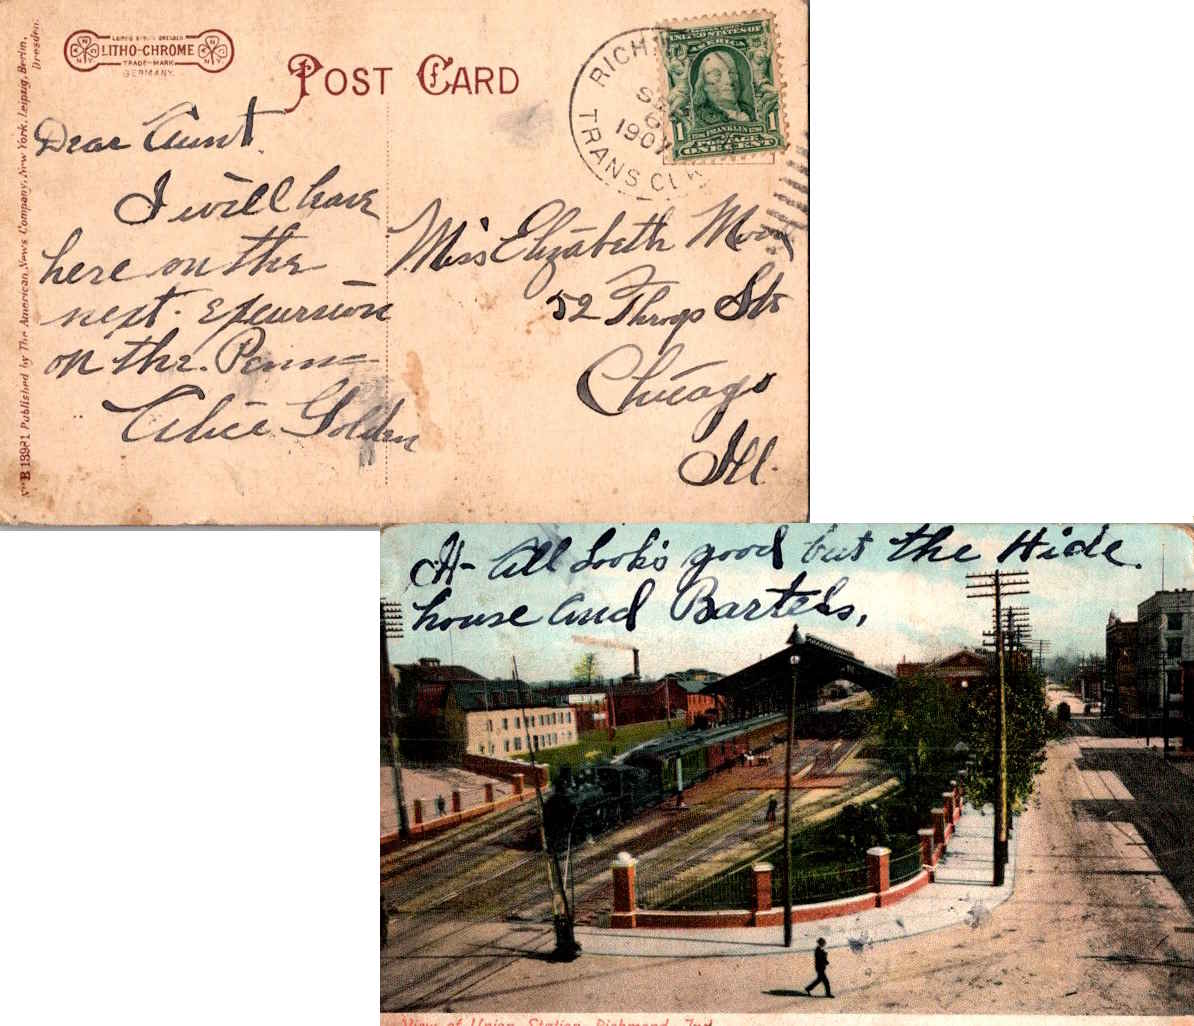 LEIPZIG BERLIN DRESDEN
LITHO-CHROME
TRADE-MARK
GERMANY.
POST CARD
No B 13981 Published by The American News Company, New York, Leipzig, Berlin, Dresden.
RICHM
SEP
6
1907
TRANS. CLK
UNITED STATES OF
AMERICA
1 FRANKLIN 1
POSTAGE
ONE CENT
Dear Aunt
I will leave
here on the
next excursion
on the Penn
Alice Golden
Miss Elizabeth Moon
52 Throop Str
Chicago
Ill.
A- All Look's good but the Hide
house and Bartels,
View of Union Station, Richmond, Ind.